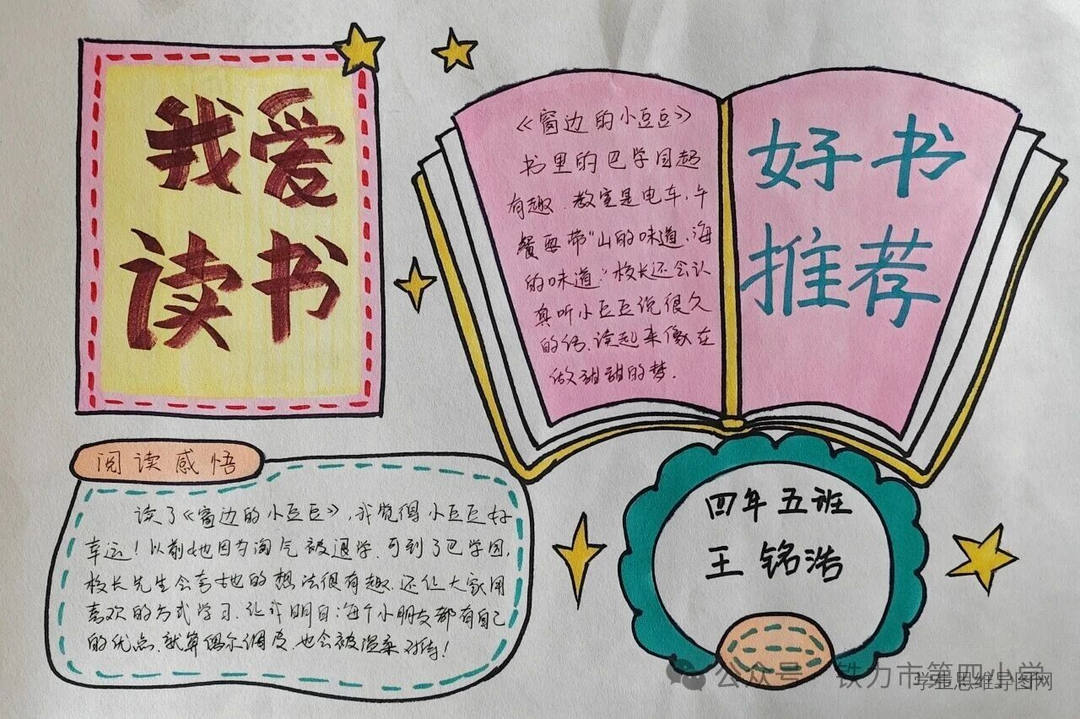 我爱
读书
《窗边的小豆豆》
书里的巴学园超
有趣.教室是电车,午
餐要带"山的味道,海
的味道."校长还会认
真听小豆豆说很久
的话.读起来像在
做甜甜的梦.
好书
推荐
阅读感悟
读了《窗边的小豆豆》,我觉得小豆豆好
幸运!以前她因为淘气被退学.可到了巴学园,
校长先生会夸她的想法很有趣.还让大家用
喜欢的方式学习.让我明白:每个小朋友都有自己
的优点.就算偶尔调皮.也会被温柔对待!
四年五班
王铭浩
公众号·铁力市第四小学
学生思维导图网